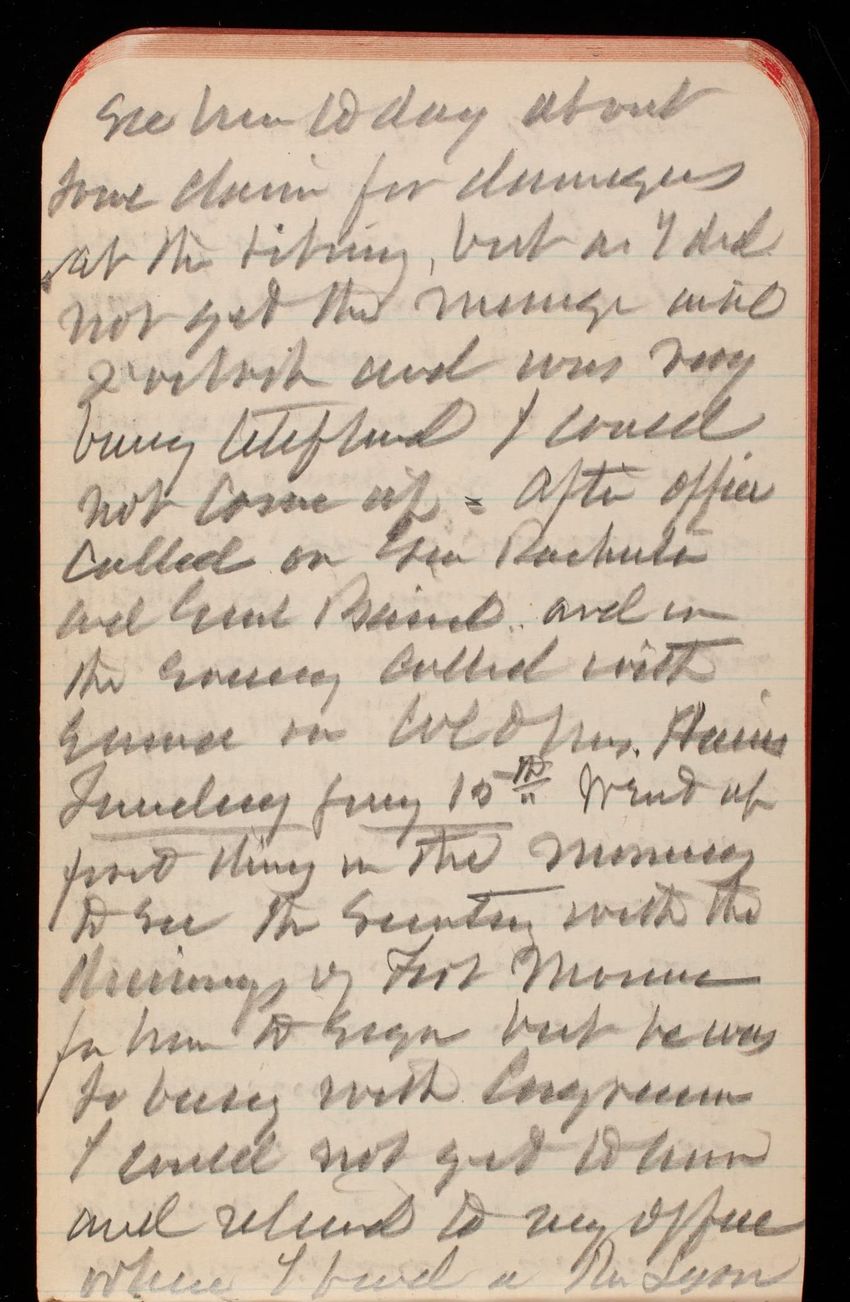 see him to day about
some claim for damages
at the , but as I did
not get the message until
2 oclock and was very
busy I could
not come up = After office
called on Gen Rochester
and Genl and in
the evening called with
Emma on Col & Mrs. Hains
Tuesday Jany 15th Went up
first thing in the morning
to see the Secretary with the
drawings of Fort Monroe
for him to sign but he was
so busy with Congressmen
I could not get to him
and returned to my office
where I found a Mr Lyon